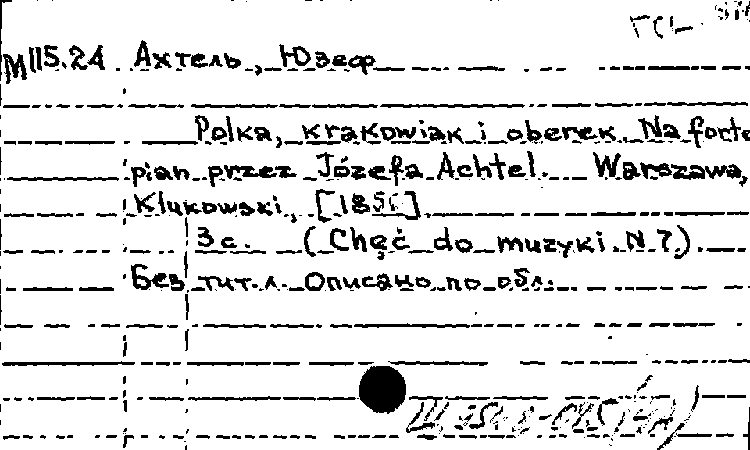 М115.24 Ахтель, Юзеф
Polka, krakowiak i oberek. Na forte
pian przez Józefa Achtel. Warszawa,
Klukowski, [185
3 с. (Chęć do muzyki N 7.).
Без тит. л. Описано по обл.